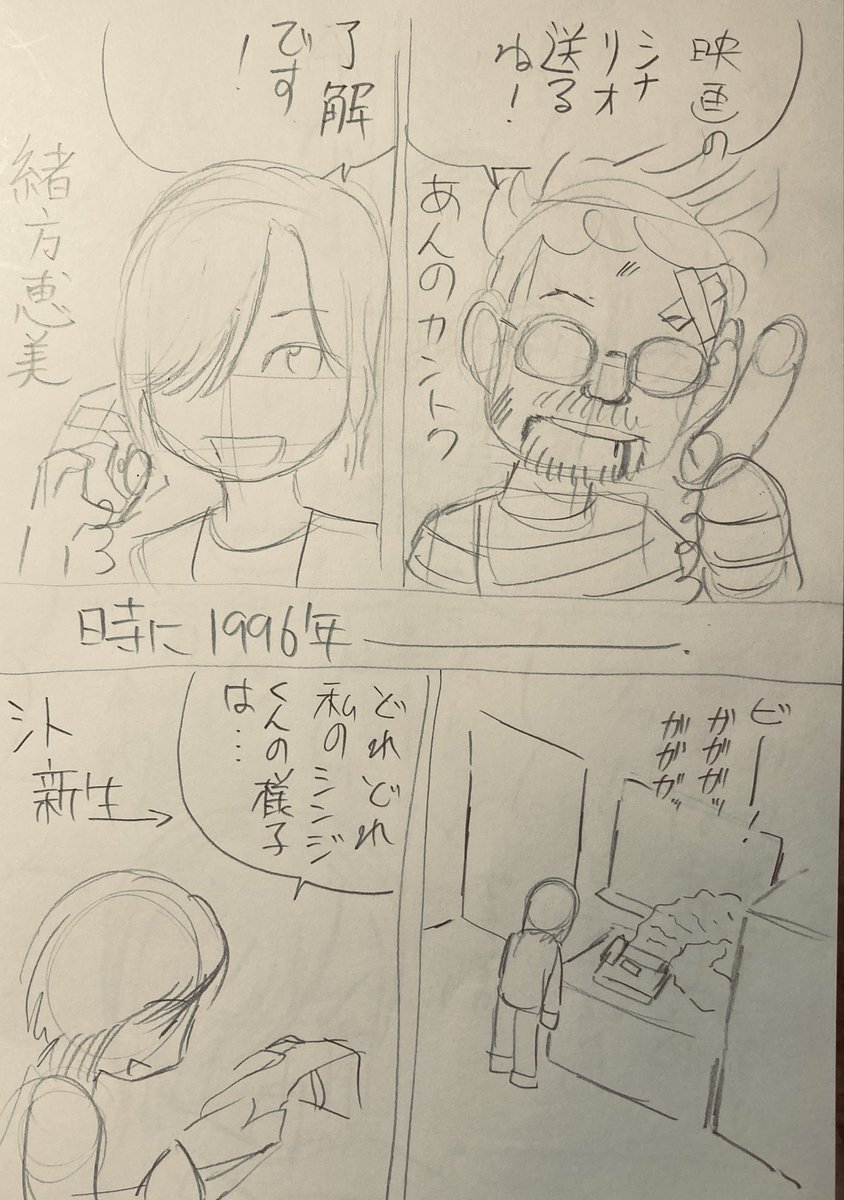 映画の
シナ
リオ
送る
ね!
あんのカントク
了解
です
!
緒方恵美
時に1996年
ビーー!
ガガガガッ
ガガガッ
どれどれ
私のシンジ
くんの様子
は…
シト
新生